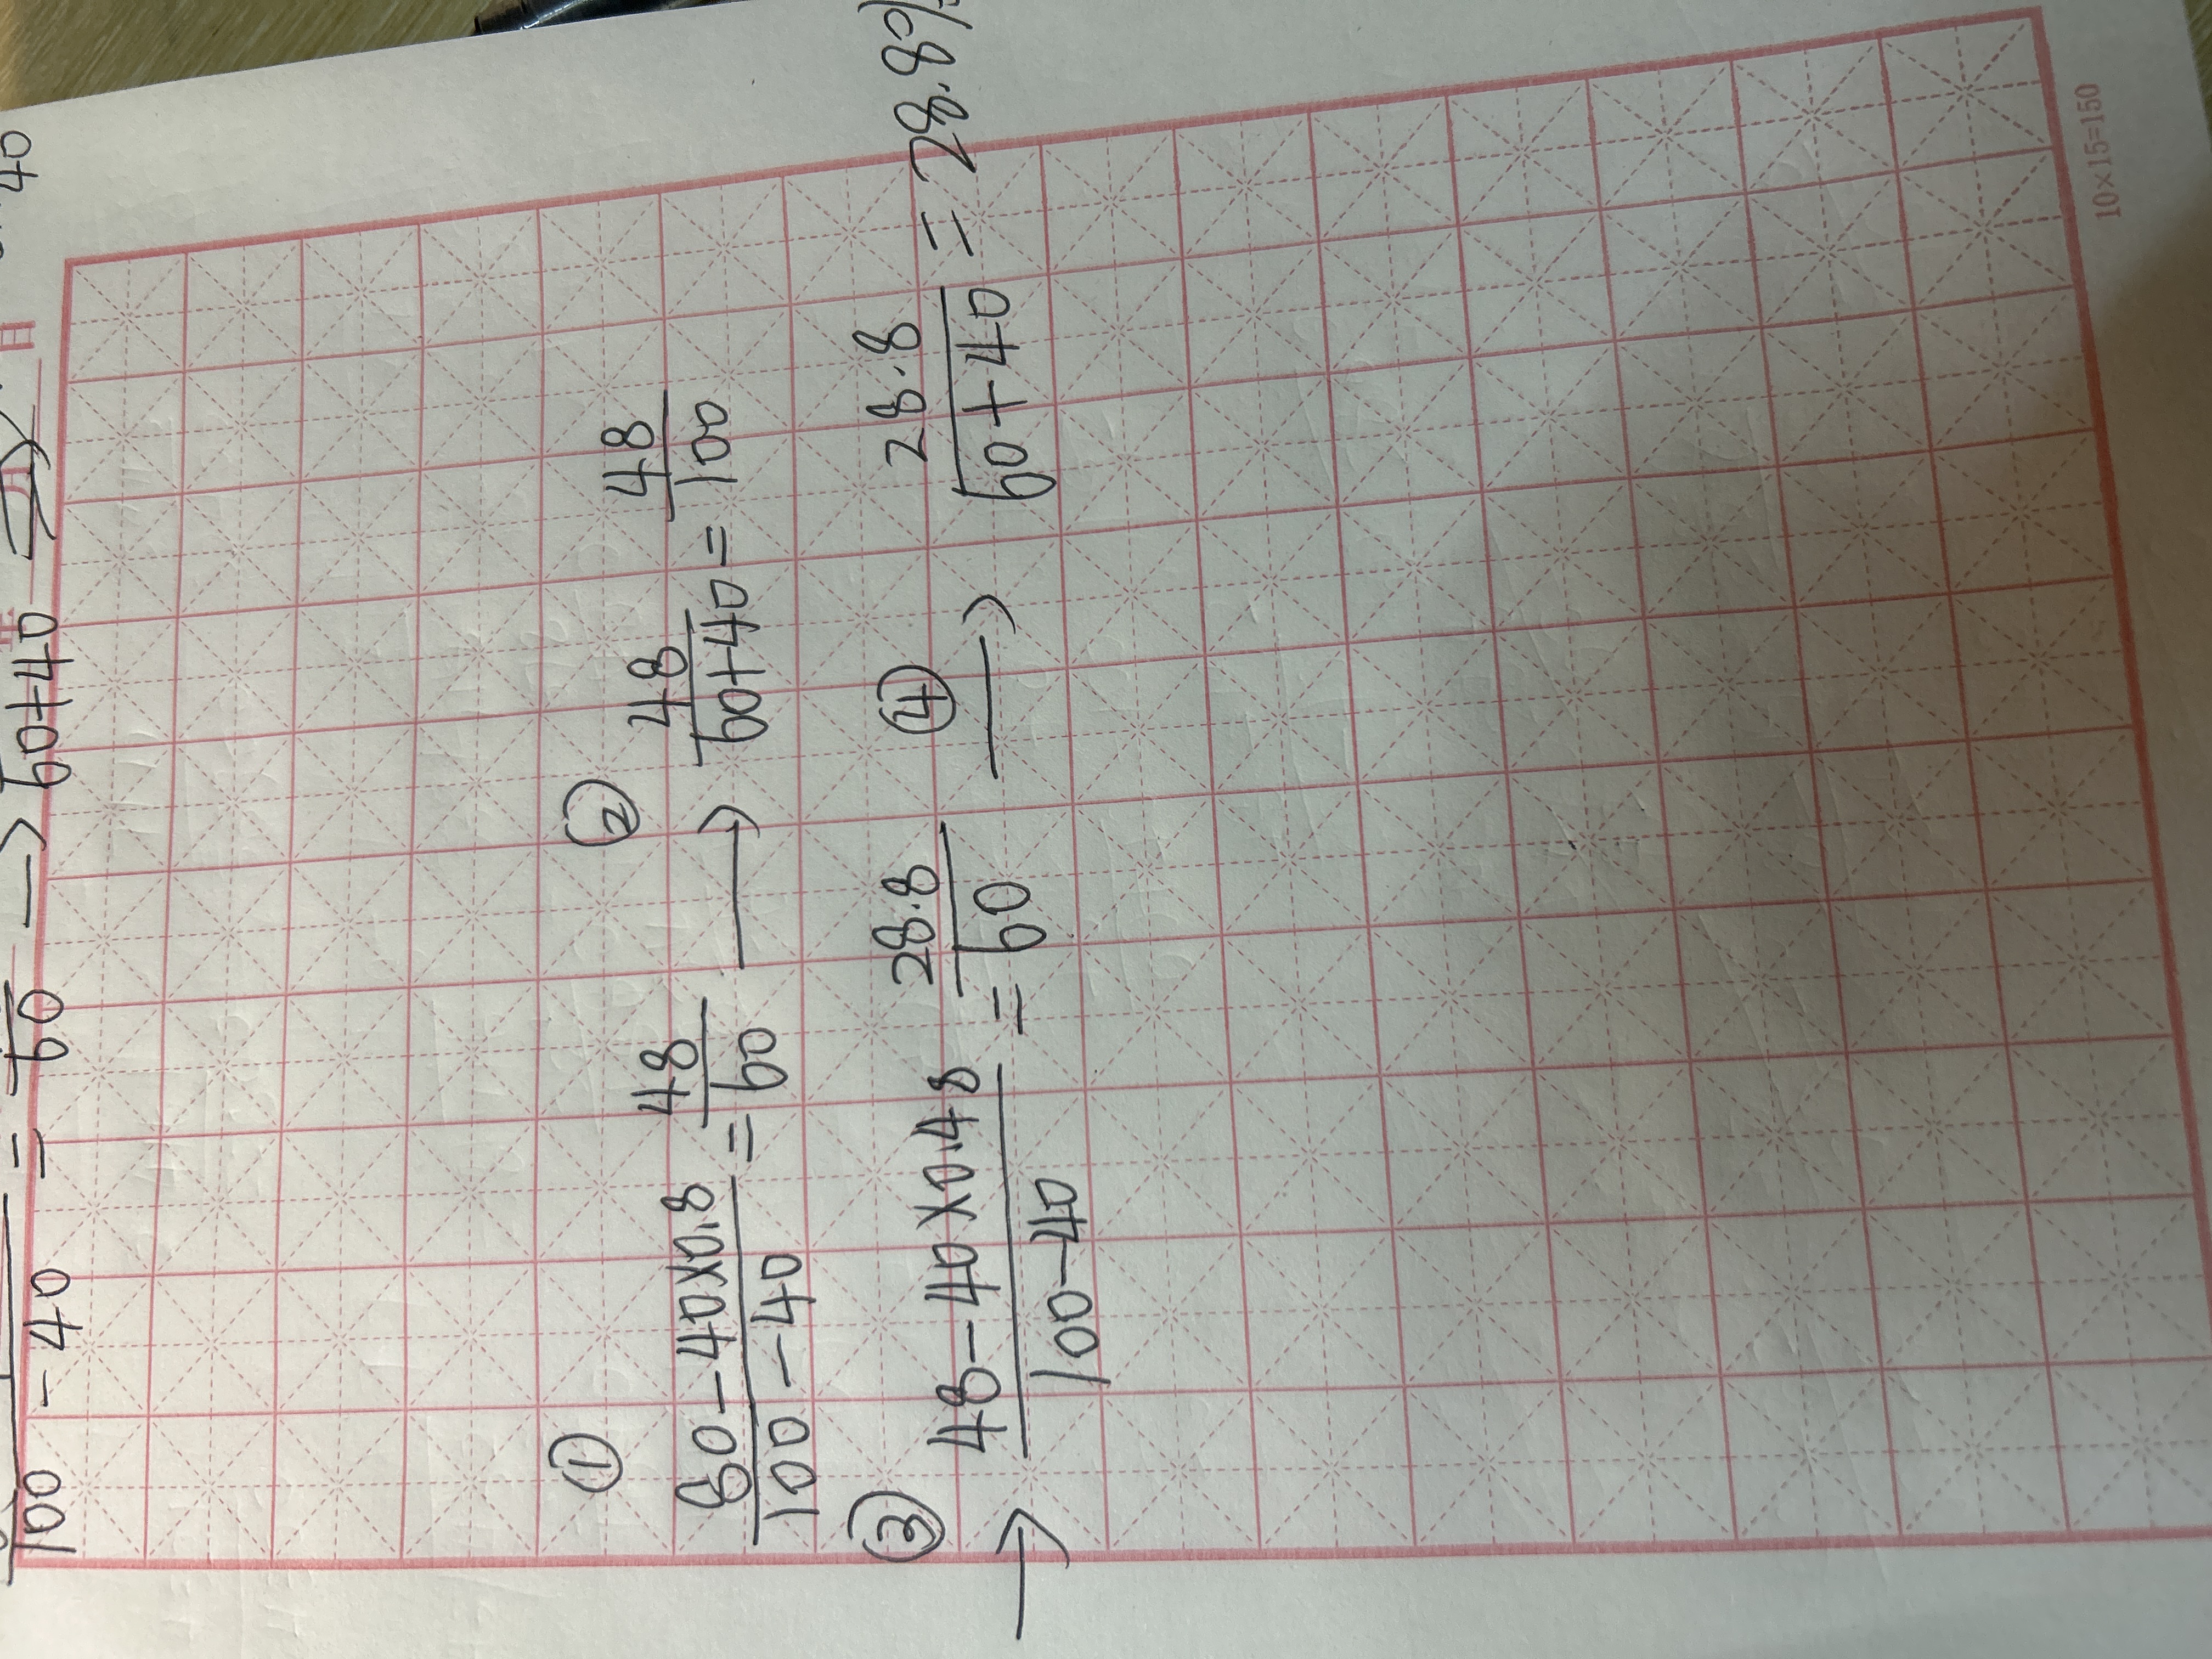 100 - 40 = 60 → 60+40 ⇒ 40
① ②
80-40×0.8/100-40 = 48/60 → 48/60+40 = 48/100
③ ④
→ 48-40×0.48/100-40 = 28.8/60 → 28.8/60+40 = 28.8%
10×15=150